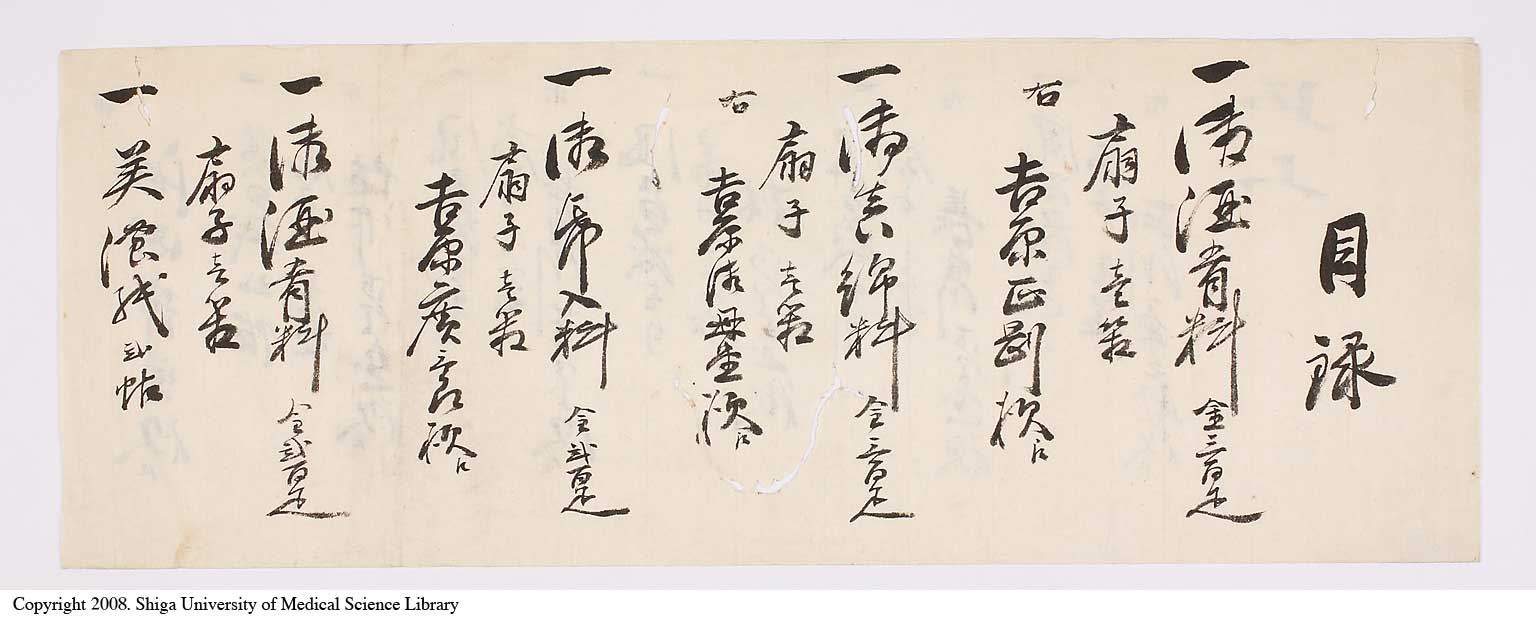 目録
一 御酒肴料 金三百疋
扇子 壱箱
右 吉原正剛様江
一 御真綿料 金三百疋
扇子 壱箱
右 吉原御母堂様江
一 御帯入料 金弐百疋
扇子 壱箱
吉原廣之丞様江
一 御酒肴料 金弐百疋
扇子 壱箱
一 美濃紙 弐帖
Copyright 2008. Shiga University of Medical Science Library